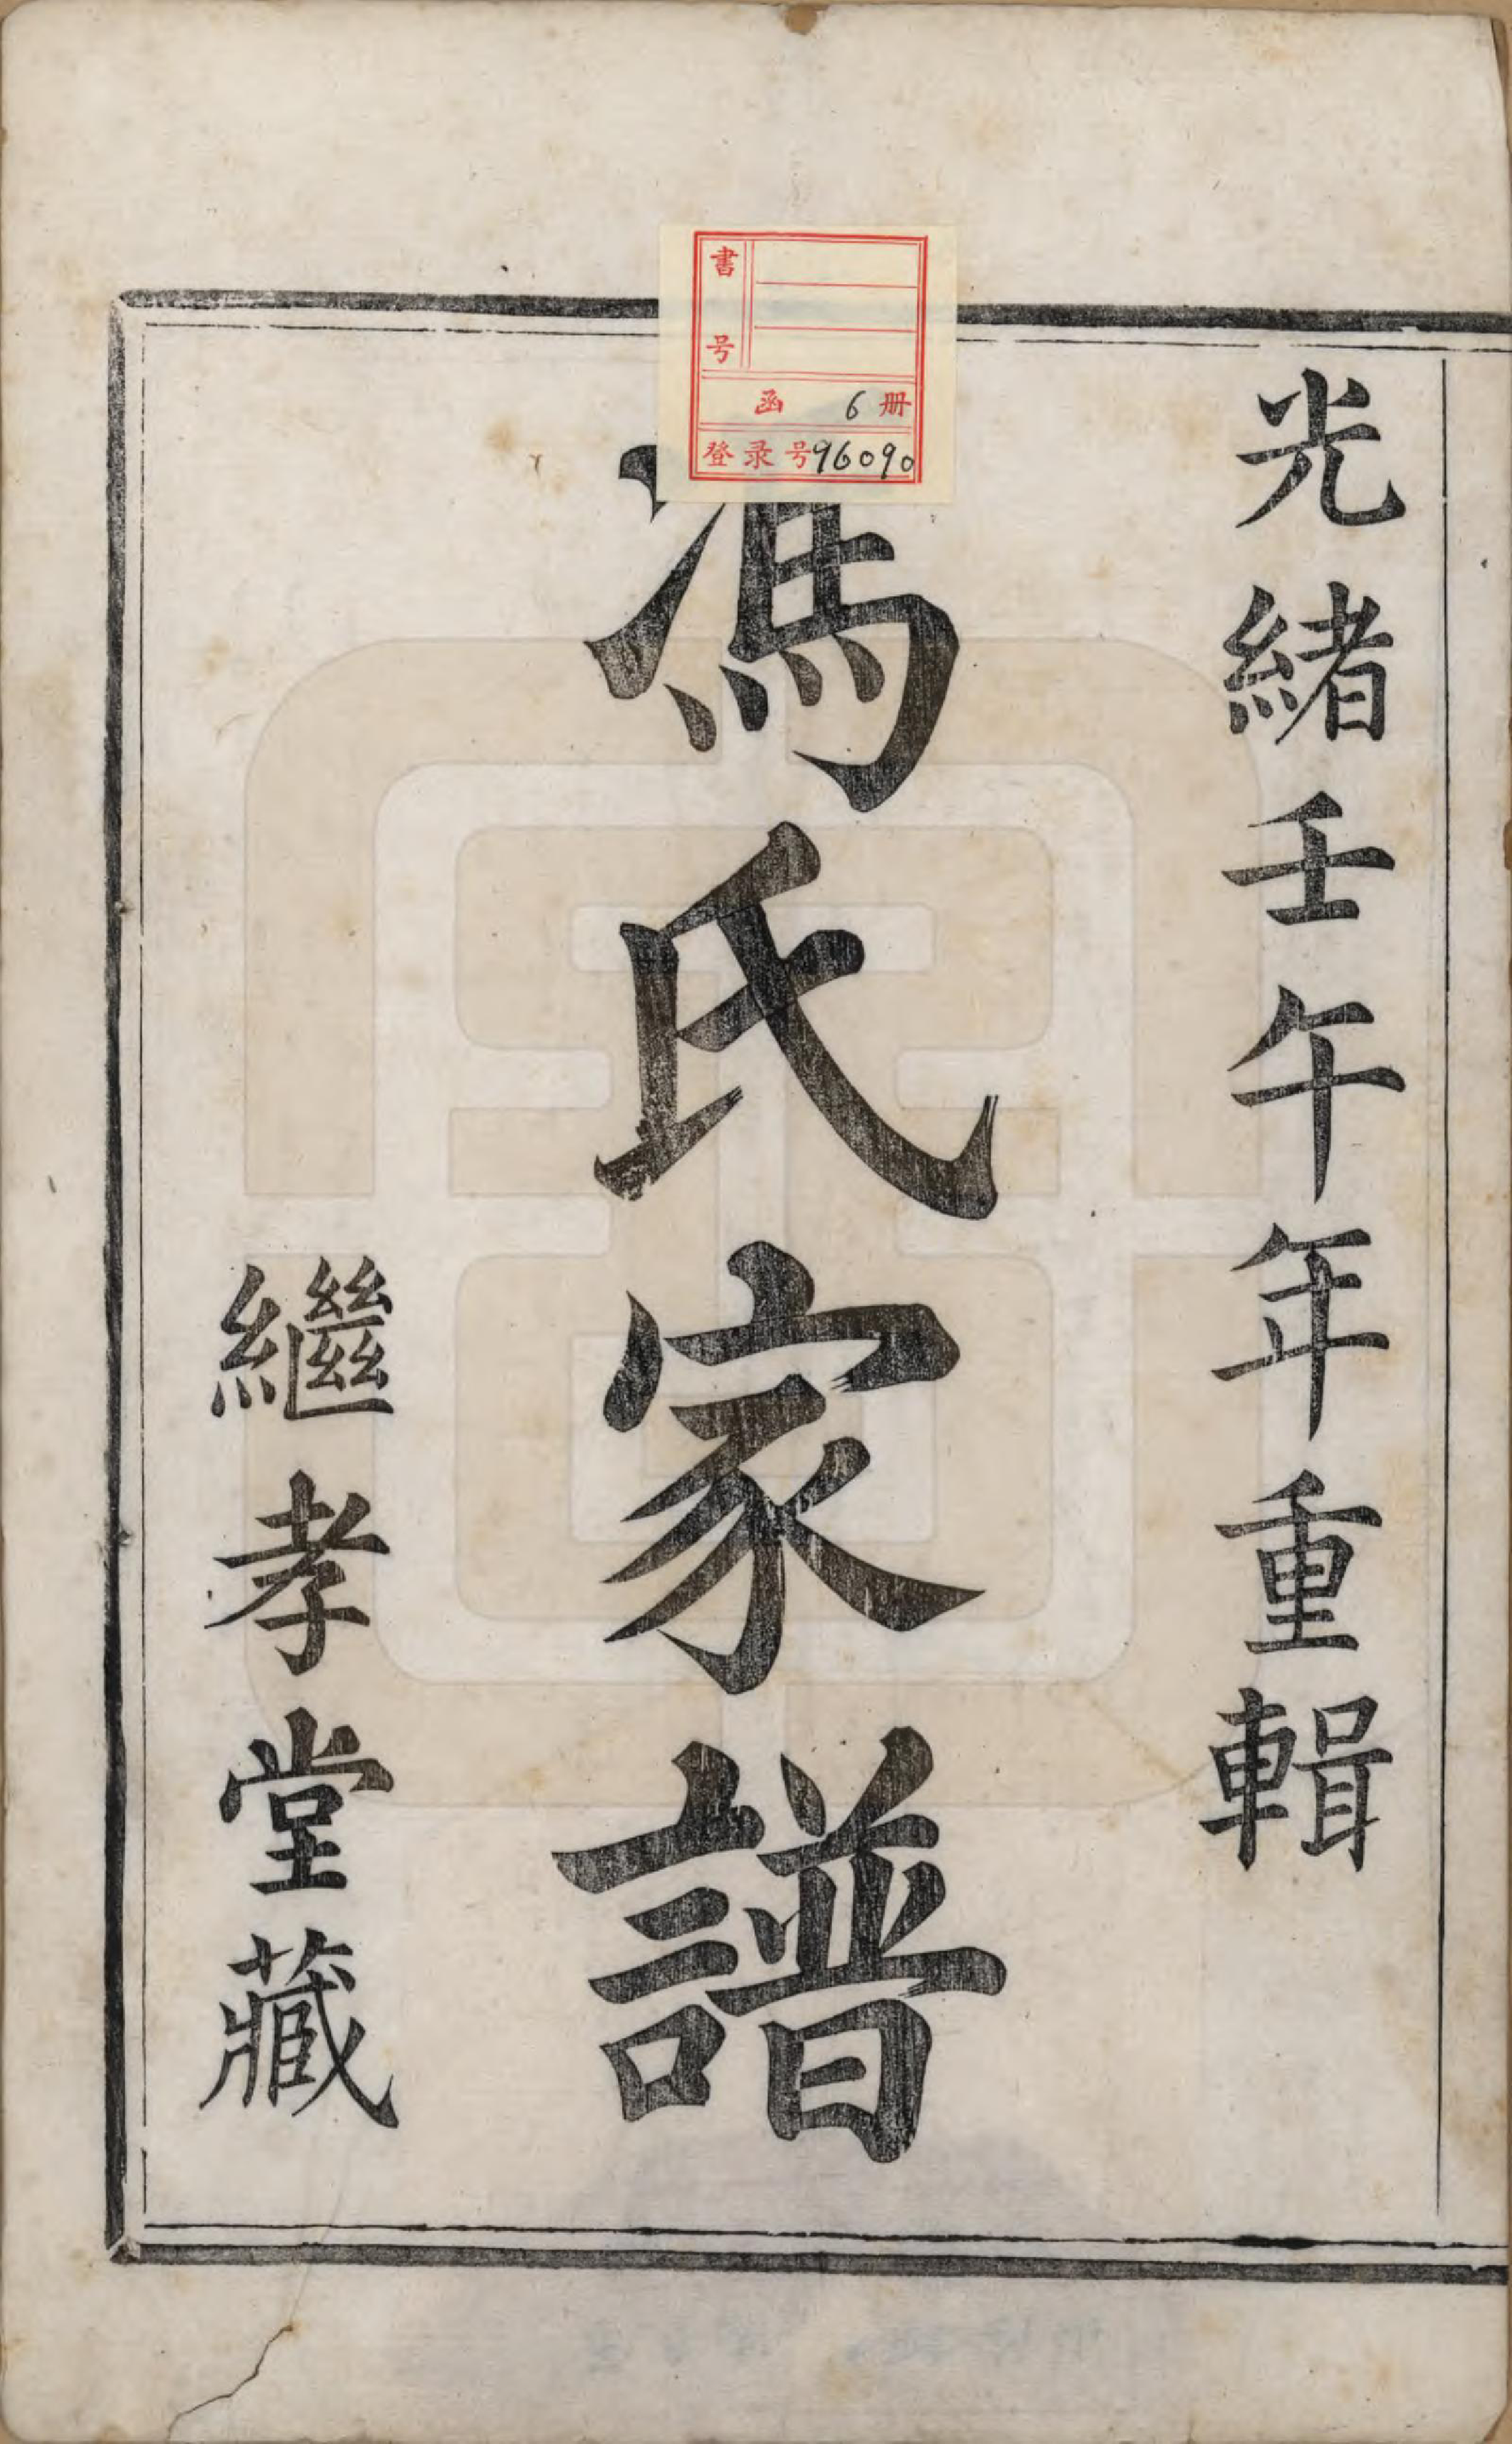 光緒壬午年重輯
馮氏家譜
繼孝堂藏
書号
函 6 册
登录号96090